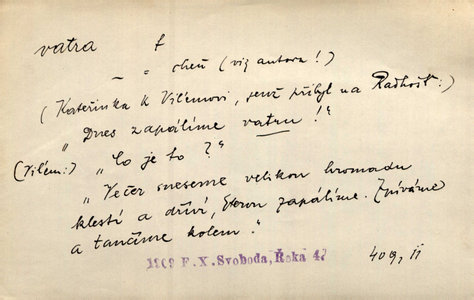 vatra f
– " oheň (viz autora!)
(Kateřinka k Vilémovi, jenž přibyl na Radhošť:)
"Dnes zapálíme vatru!"
(Vilém:) "Co je to?"
"Večer sneseme velikou hromadu
klestí a dříví, kterou zapálíme. Zpíváme
a tančíme kolem."
1909 F.X.Svoboda, Řeka 47
409, II